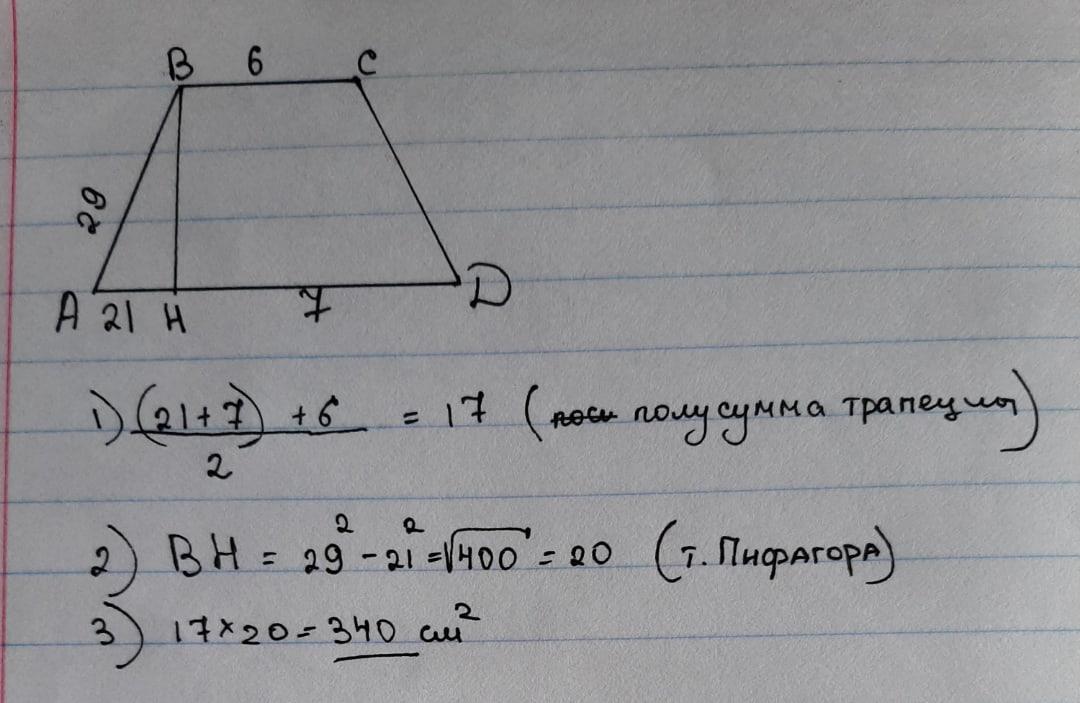 B 6 C
29
A 21 H 7 D
1) (21+7) + 6 / 2 = 17 (полусумма трапеции)
2) BH = 29² - 21² = √400 = 20 (т. Пифагора)
3) 17 × 20 = 340 см²